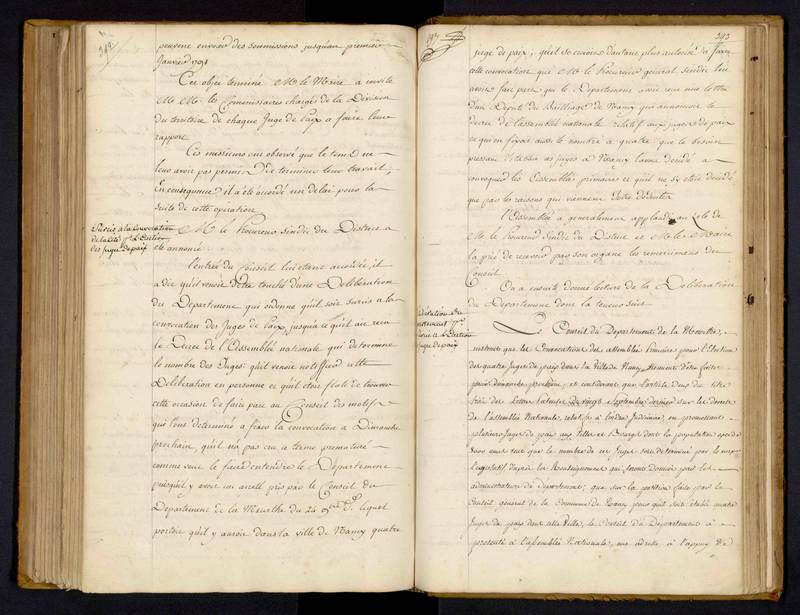 392
peuvent envoier des soumissions jusqu'au premier
Janvier 1791
Cet objet terminé M. le Maire a invité
M.M. les Commissaires chargés de la Division
du territoire de chaque Juge de Paix a faire leur
rapport
Ces messieurs ont observé que le tems ne
leur avoit pas permis de terminer leur travail,
En consequence il a été accordé un delai pour la
suite de cette opération
Sursis a la Convocation
de la Cité pr. l'Election
des Juges de paix
M. le Procureur sindic du District a
été annoncé
l'entrée du Conseil lui etant accordée, il
a dit qu'il venoit d'etre touché d'une Deliberation
du Departement qui ordonne qu'il soit sursis a la
convocation des Juges de Paix jusqu'a ce qu'il ait recu
le Decret de l'Assemblée nationale qui determine
le nombre des Juges: qu'il venoit notiffier cette
Deliberation en personne et qu'il etoit flaté de trouver
cette occasion de faire part au Conseil des motifs
qui l'ont determiné a fixer la convocation a Dimanche
prochain, qu'il n'a pas cru ce terme prematuré
comme veut le faire entendre le Departement
puisqu'il y avoit un arreté pris par le Conseil du
Departement de la Meurthe du 24 9bre dr. lequel
portoit qu'il y auroit dans la ville de Nancy quatre
393
juge de paix; qu'il se croioit d'autant plus autorisé a fixer
cette convocation que M. le Procureur general sindic lui
avoit fait part que le Departement avoit recu une lettre
d'un Deputé du Bailliage de Nancy qui annoncoit le
decret de l'assemblée nationale relatif aux juges de paix
et qui en fixoit aussi le nombre a quatre: que le besoin
pressant d'etablir ces juges a Nancy l'avoit decidé a
convoquer les Assemblées primaires et qu'il ne s'y etoit decidé
que par les raisons qui viennent d'etre deduites
l'Assemblée a generalement applaudi au zele de
M. le Procureur Sindic du District et M. le Maire
l'a prié de recevoir par son organe les remerciments du
Conseil
On a ensuite donné lecture de la Deliberation
du Departement dont la teneur suit
Le Conseil du Departement de la Meurthe,
instruit que les Convocations des assemblées Primaires pour l'Election
des quatre Juges de paix dans la Ville de Nancy viennent d'etre faites
pour dimanche prochain, et considerant que l'article deux du titre
trois des Lettres Patentes du vingt quatre septembre dernier sur les decrets
de l'assemblée Nationale, relatifs a l'ordre Judiciaire, en promettant
plusieurs Juges de paix aux Villes et Bourgs dont la population excede
8000 ames veut que le nombre de ces Juges soit determiné par le corps
Legislatif, d'après les Renseignements qui seront donnés par les
administrateurs de Departement; que sur la petition faite par le
Conseil general de la Commune de Nancy pour qu'il soit etabli quatre
Juges de paix dans cette Ville, le Conseil du Departement a
presenté a l'assemblée Nationale, une adresse a l'appuy de